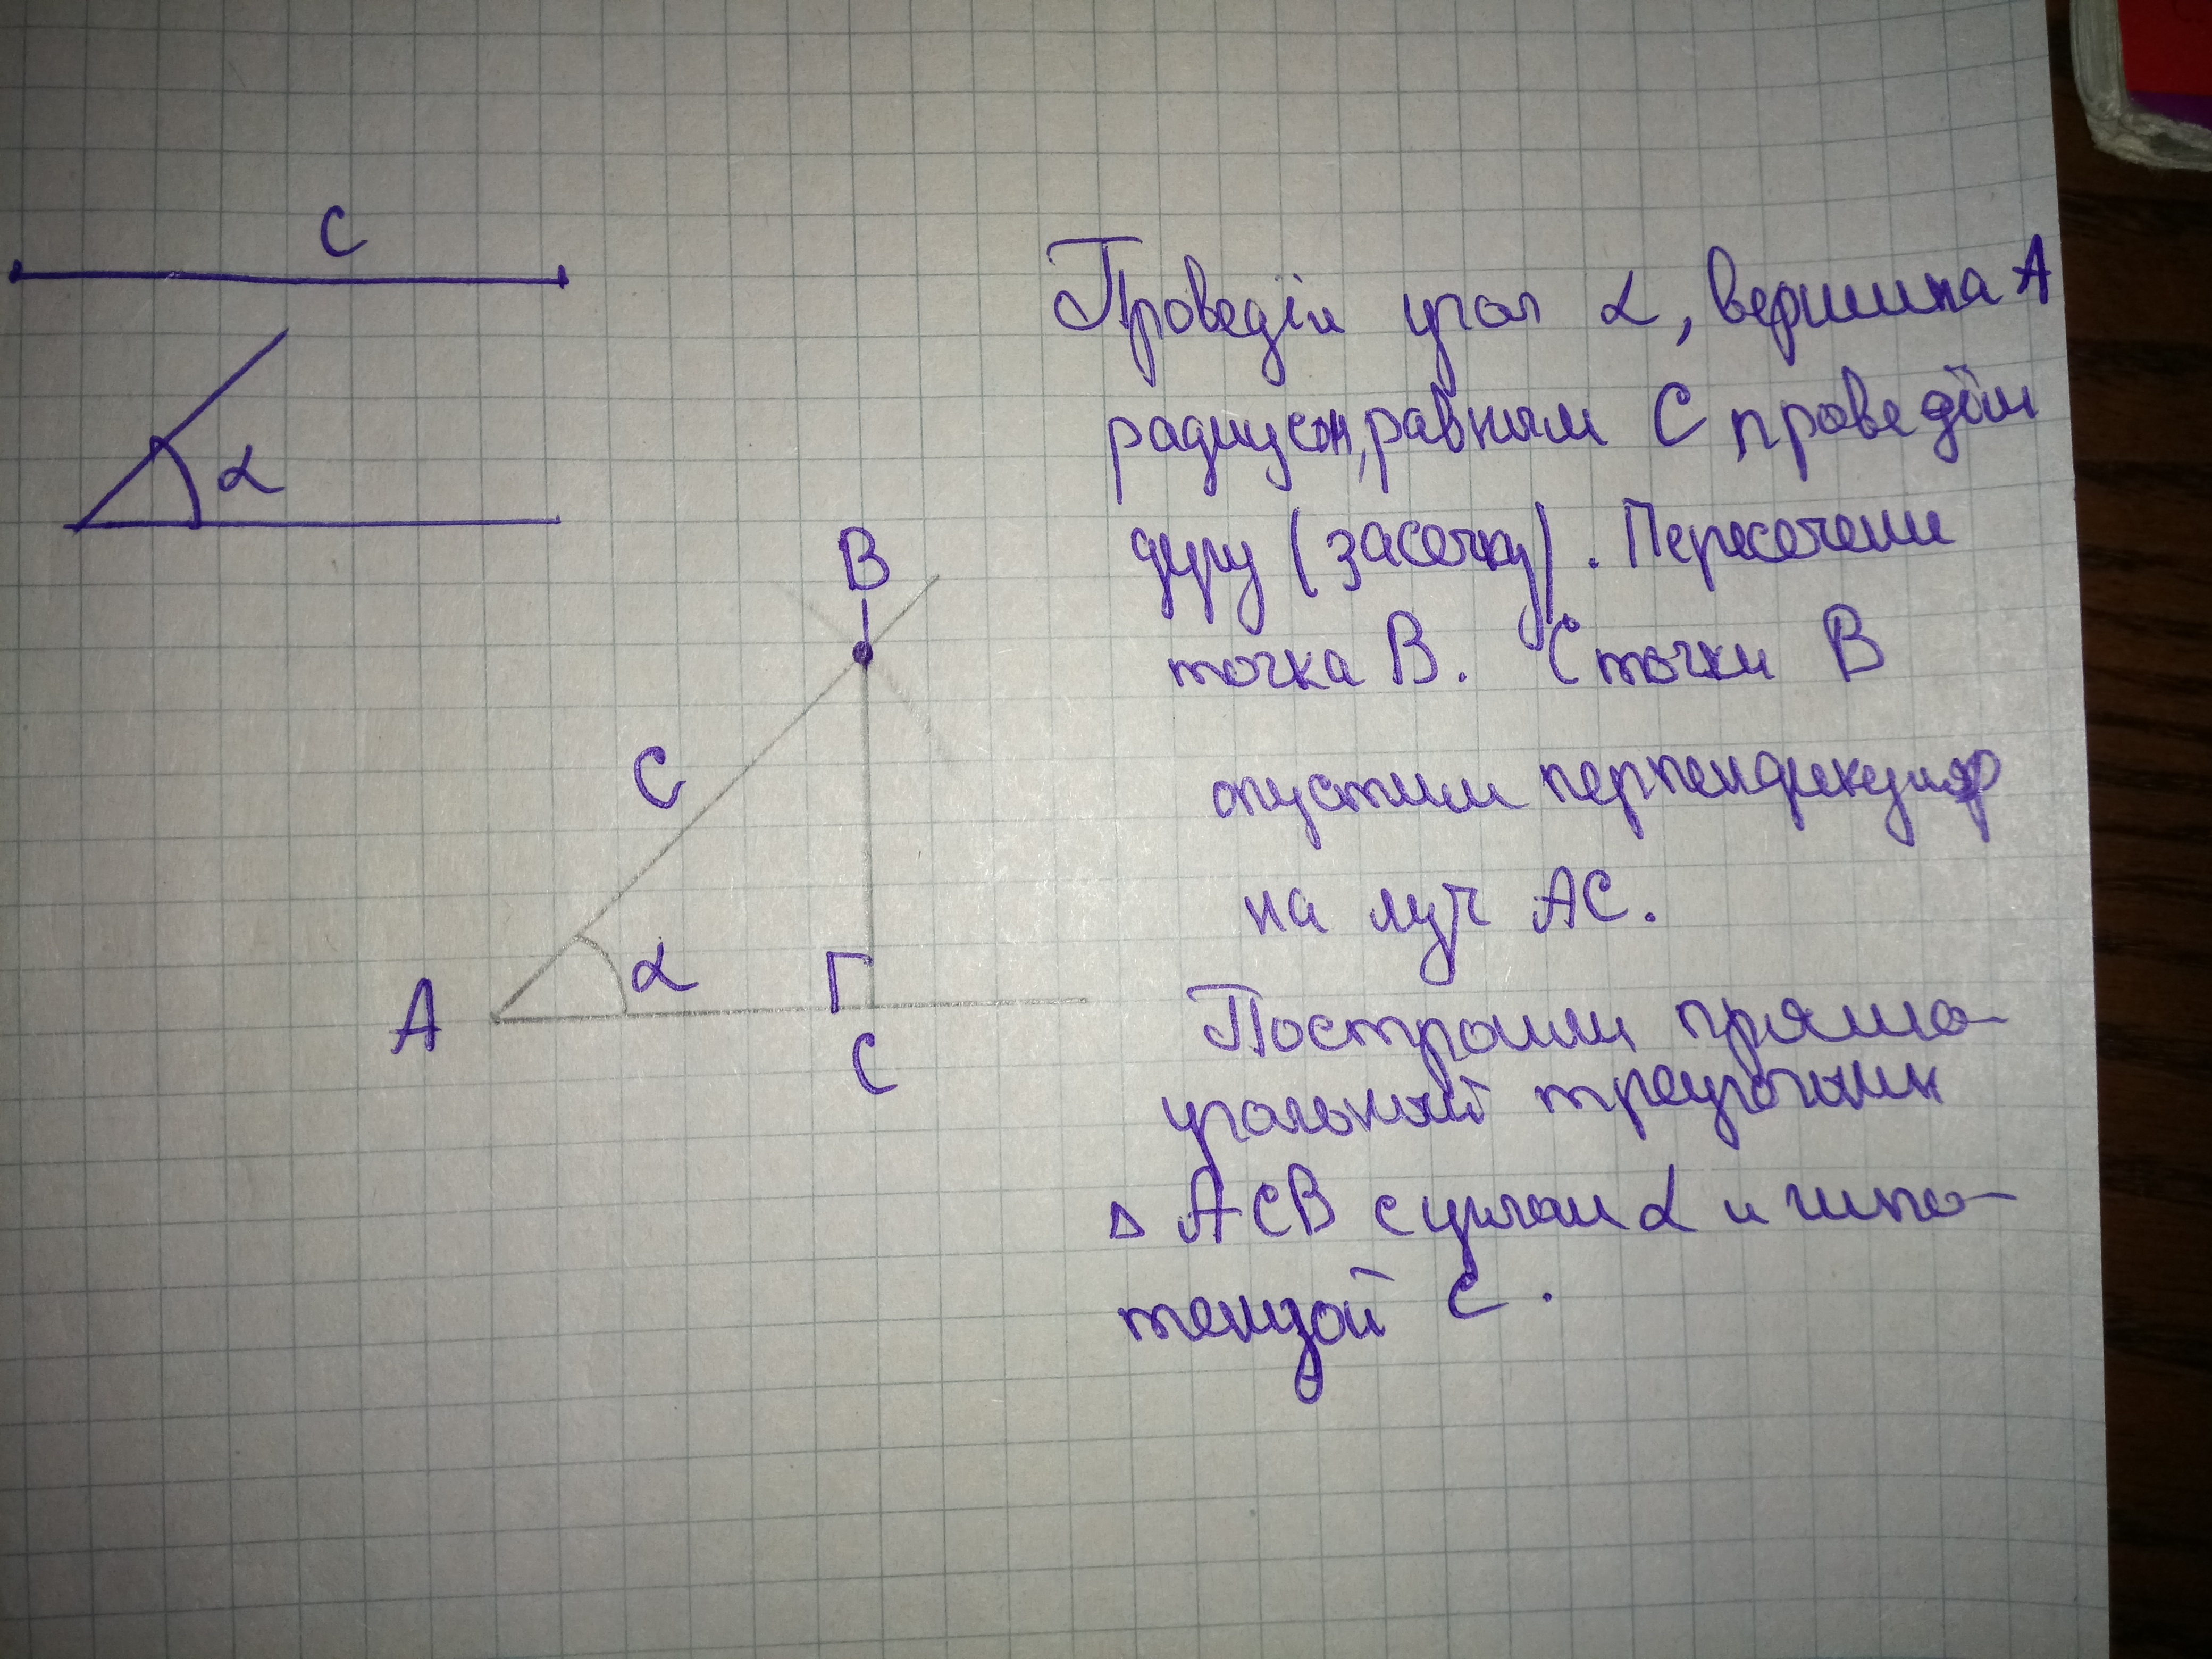 C
α
B
C
α
A
C
Проведём угол α, вершина А
радиусом, равным С проведём
дугу (засечку). Пересечение
точка В. С точки В
опустим перпендикуляр
на луч АС.
Построили прямо-
угольный треугольник
△ АСВ с углом α и гипо-
тенузой с.